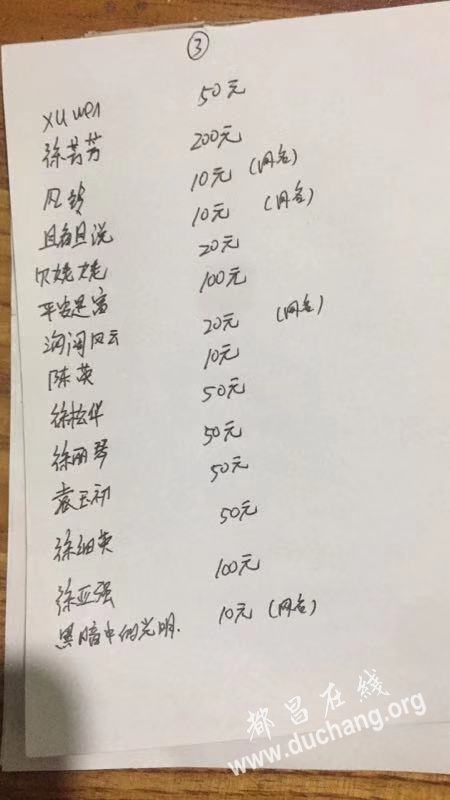 ③
xu wei 50元
徐芳芳 200元
风铃 10元 (网名)
且看且说 10元 (网名)
姥姥 20元
平安是富 100元
海阔风云 20元 (网名)
陈英 10元
徐松华 50元
徐丽琴 50元
袁玉初 50元
徐细英 50元
徐亚强 100元
黑暗中的光明. 10元 (网名)
都昌在線
www.duchang.org